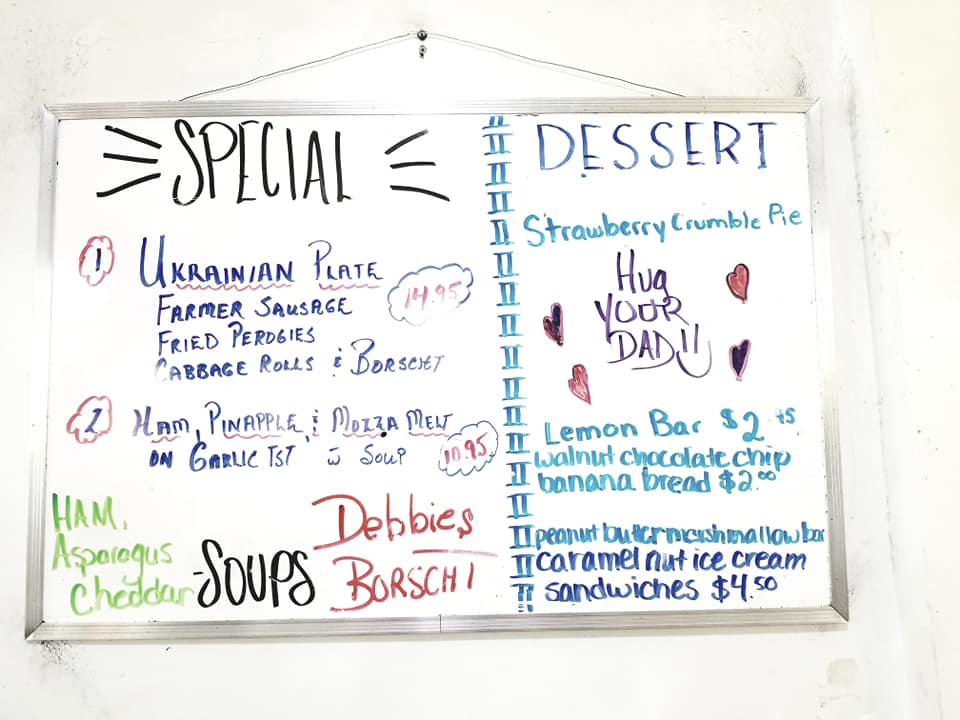 SPECIAL
1 UKRAINIAN PLATE
14.95
FARMER SAUSAGE
FRIED PEROGIES
CABBAGE ROLLS & BORSCHT
2 HAM, PINAPPLE & MOZZA MELT
ON GARLIC TST w SOUP 10.95
HAM,
Asparagus
Cheddar
-SOUPS
Debbies
BORSCHT
DESSERT
Strawberry Crumble Pie
Hug
YOUR
DAD!!
Lemon Bar $2.95
walnut chocolate chip
banana bread $2.00
peanut butter marshmallow bar
caramel nut ice cream
sandwiches $4.50